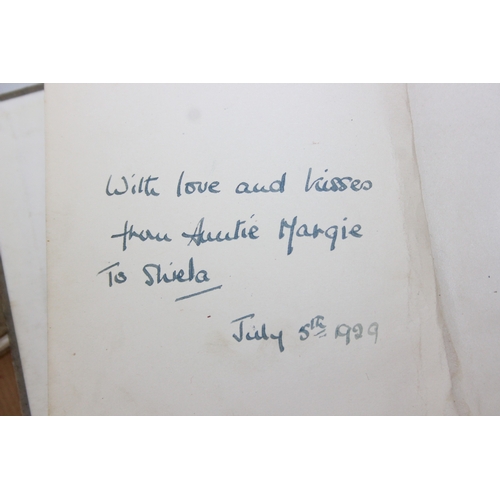 With love and kisses
from Auntie Margie
To Shiela
July 5th 1929